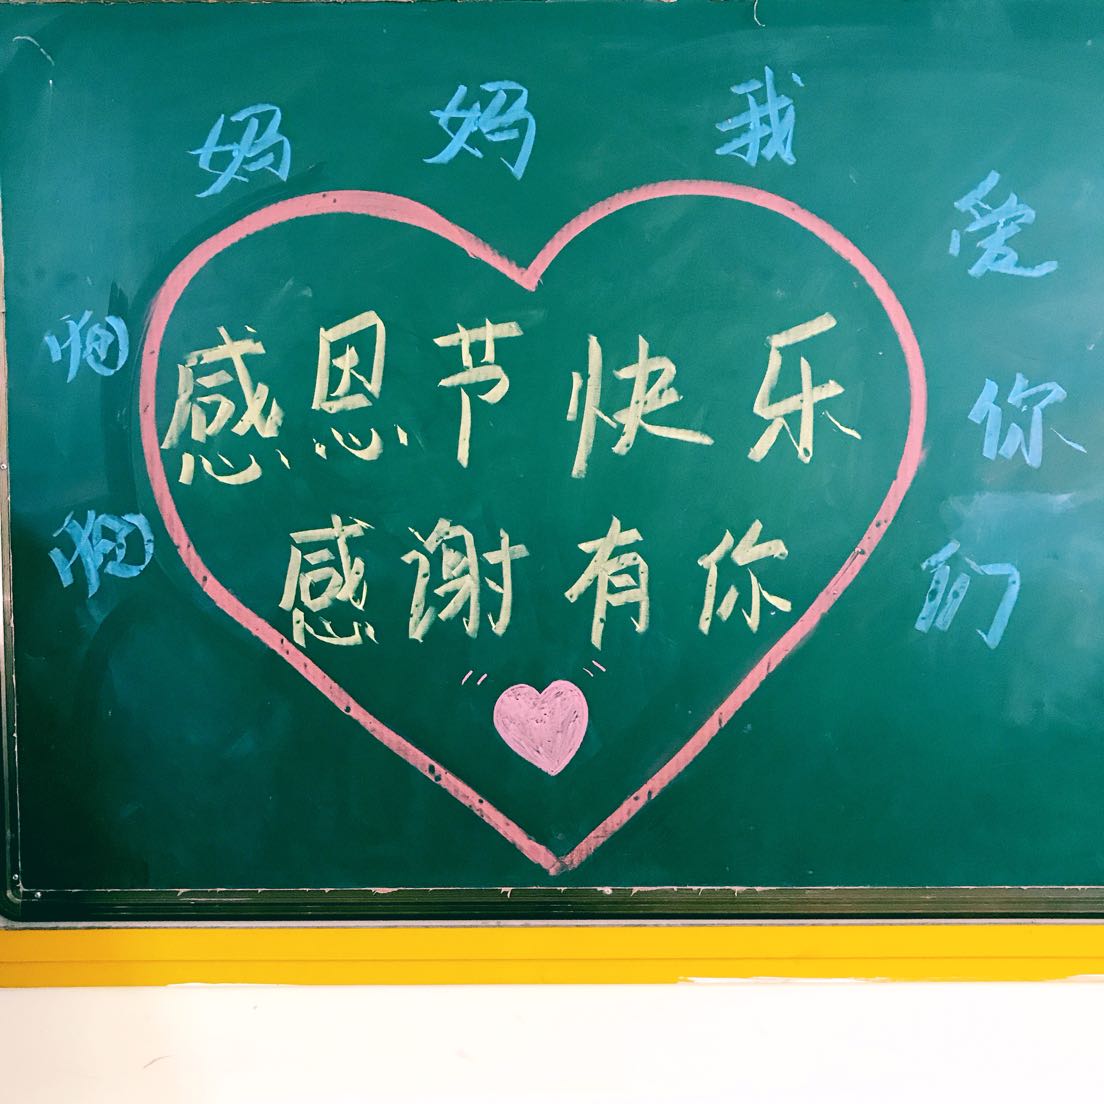 爸爸妈妈我爱你们
感恩节快乐
感谢有你